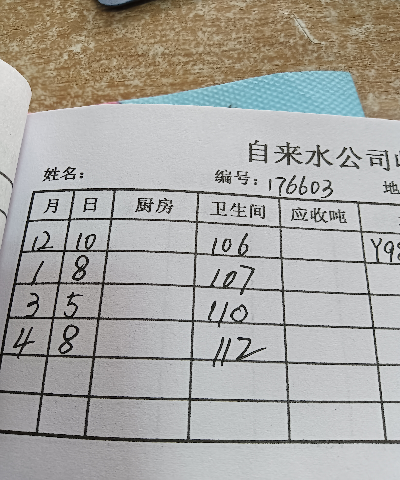 自来水公司
姓名： 编号：176603 地
月 日 厨房 卫生间 应收吨
12 10 106 Y98
1 8 107
3 5 110
4 8 112